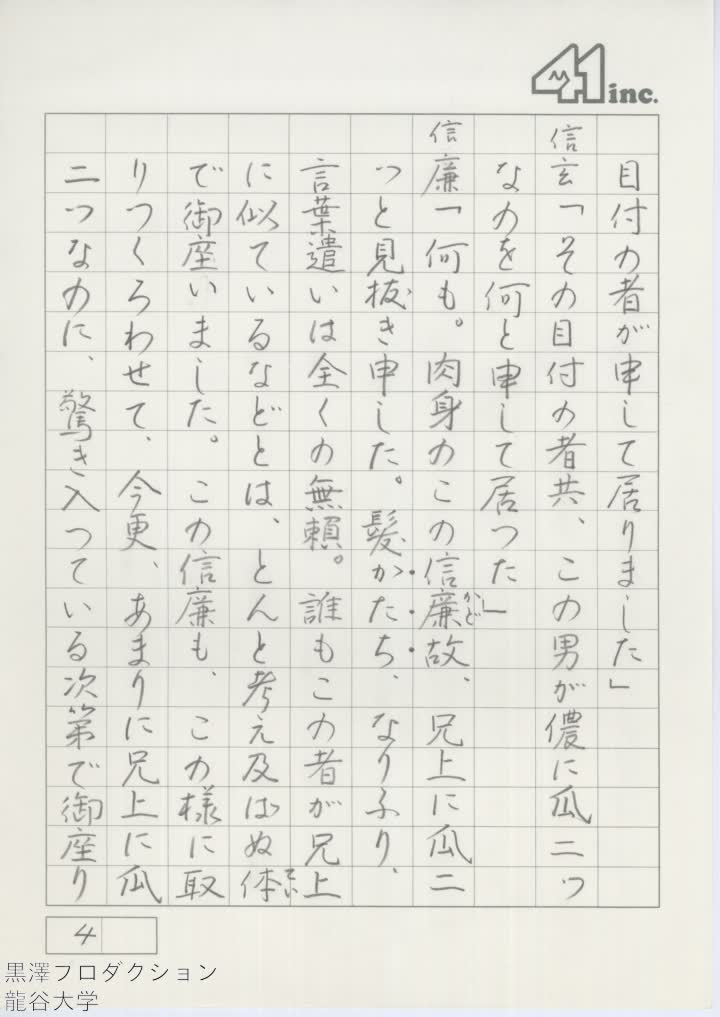 41 inc.
目付の者が申して居りました」
信玄「その目付の者共、この男が儂に瓜二つ
なのを何と申して居つた」
信廉「何も。肉身のこの信廉故、兄上に瓜二
かど
つと見抜き申した。髪かたち、なりふり、
言葉遣いは全くの無頼。誰もこの者が兄上
に似ているなどとは、とんと考え及ばぬ体
てい
で御座いました。この信廉も、この様に取
りつくろわせて、今更、あまりに兄上に瓜
二つなのに、驚き入つている次第で御座り
4
黒澤プロダクション
龍谷大学